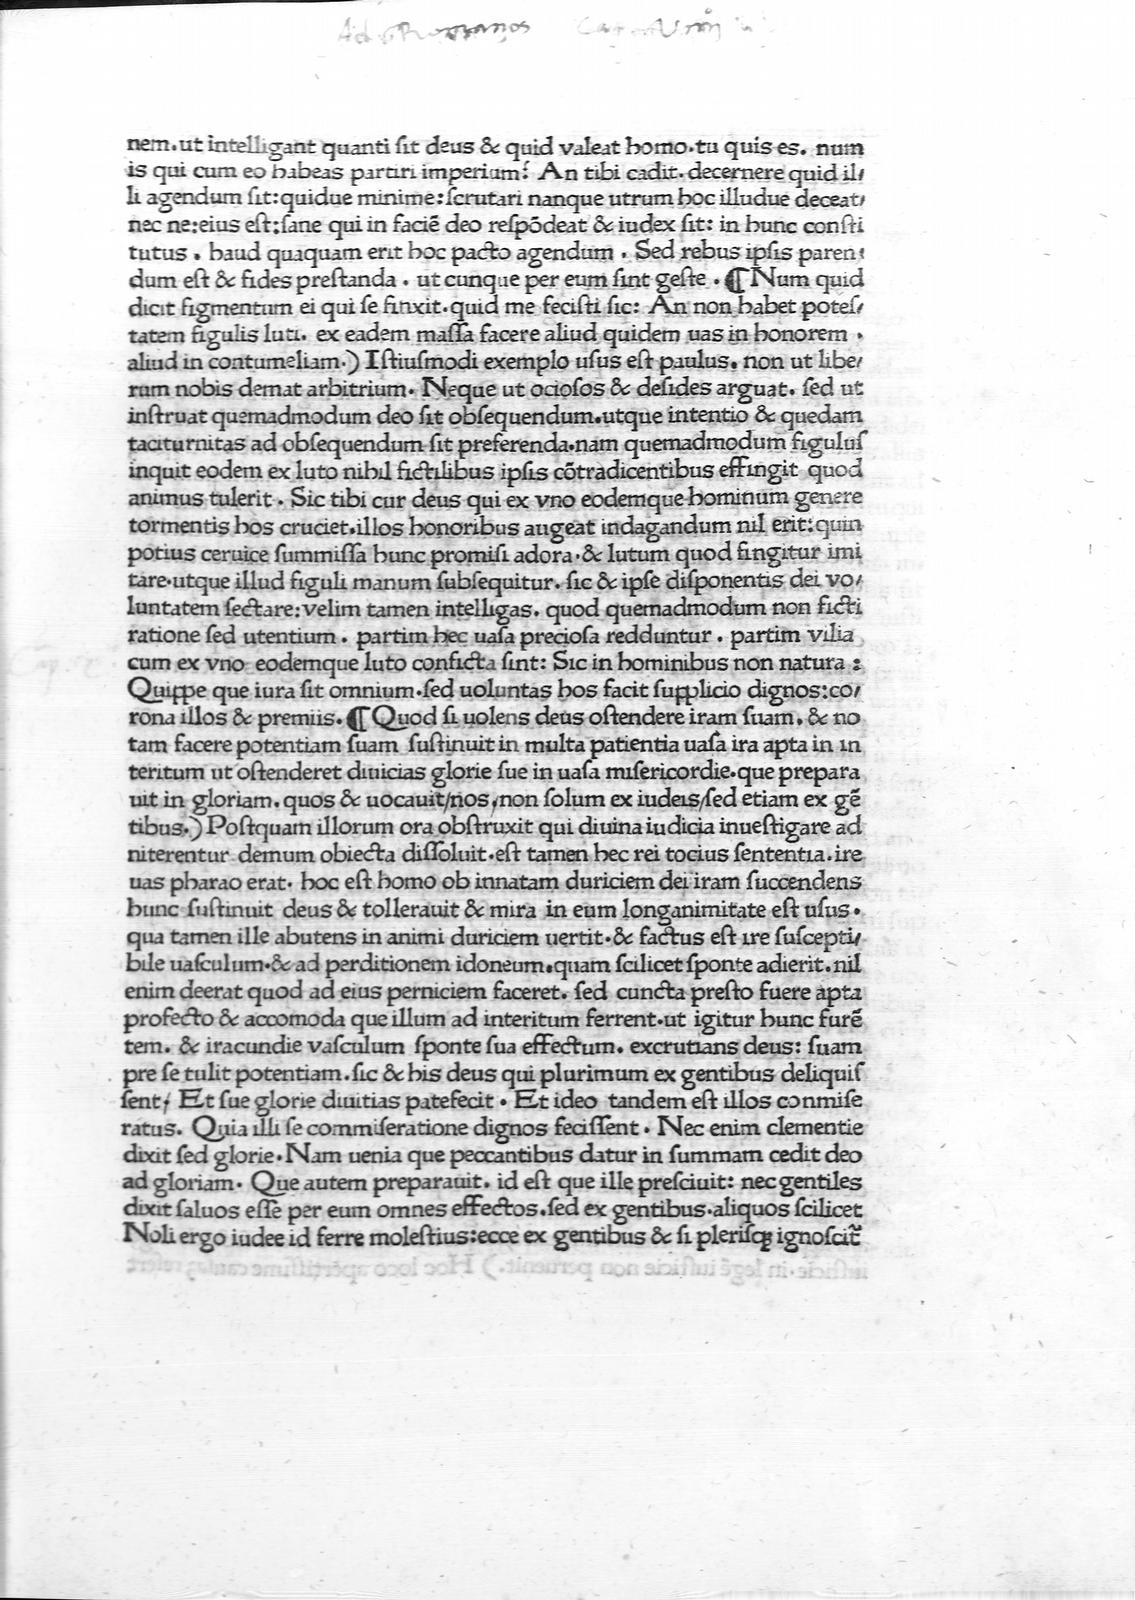 Ad Romanos
nem.ut intelligant quanti ſit deus & quid valeat homo.tu quis es. num
is qui cum eo habeas partiri imperium? An tibi cadit.decernere quid il/
li agendum ſit:quidue minime:ſcrutari nanque utrum hoc illudue deceat/
nec ne:eius eſt:ſane qui in faciē deo reſpōdeat & iudex ſit: in hunc conſti
tutus . haud quaquam erit hoc pacto agendum . Sed rebus ipſis paren/
dum eſt & fides preſtanda . ut cunque per eum ſint geſte . ¶ Num quid
dicit figmentum ei qui ſe finxit.quid me feciſti ſic: An non habet poteſ/
tatem figulis luti. ex eadem maſſa facere aliud quidem uas in honorem .
aliud in contumeliam.) Iſtiuſmodi exemplo uſus eſt paulus. non ut libe/
rum nobis demat arbitrium. Neque ut ocioſos & deſides arguat. ſed ut
inſtruat quemadmodum deo ſit obſequendum.utque intentio & quedam
taciturnitas ad obſequendum ſit preferenda.nam quemadmodum figuluſ
inquit eodem ex luto nihil fictilibus ipſis cōtradicentibus effingit quod
animus tulerit . Sic tibi cur deus qui ex vno eodemque hominum genere
tormentis hos cruciet.illos honoribus augeat indagandum nil erit:quin
potius ceruice ſummiſſa hunc promiſi adora.& lutum quod fingitur imi
tare.utque illud figuli manum ſubſequitur. ſic & ipſe diſponentis dei vo/
luntatem ſectare:velim tamen intelligas. quod quemadmodum non ficti
ratione ſed utentium . partim hec uaſa precioſa redduntur . partim vilia
cum ex vno eodemque luto conficta ſint: Sic in hominibus non natura :
Quippe que iura ſit omnium.ſed uoluntas hos facit ſupplicio dignos:co/
rona illos & premiis.¶ Quod ſi uolens deus oſtendere iram ſuam. & no
tam facere potentiam ſuam ſuſtinuit in multa patientia uaſa ira apta in in
teritum ut oſtenderet diuicias glorie ſue in uaſa miſericordie.que prepara
uit in gloriam. quos & uocauit/nos/non ſolum ex iudeis/ſed etiam ex gē
tibus.) Poſtquam illorum ora obſtruxit qui diuina iudicia inueſtigare ad
niterentur demum obiecta diſſoluit.eſt tamen hec rei tocius ſententia.ire
uas pharao erat. hoc eſt homo ob innatam duriciem dei iram ſuccendens
hunc ſuſtinuit deus & tollerauit & mira in eum longanimitate eſt uſus.
qua tamen ille abutens in animi duriciem uertit.& factus eſt ire ſuſcepti/
bile uaſculum.& ad perditionem idoneum.quam ſcilicet ſponte adierit.nil
enim deerat quod ad eius perniciem faceret. ſed cuncta preſto fuere apta
profecto & accomoda que illum ad interitum ferrent.ut igitur hunc furē
tem. & iracundie vaſculum ſponte ſua effectum. excrutians deus: ſuam
pre ſe tulit potentiam.ſic & his deus qui plurimum ex gentibus deliquiſ
ſent/ Et ſue glorie diuitias patefecit . Et ideo tandem eſt illos conmiſe
ratus. Quia illi ſe commiſeratione dignos feciſſent . Nec enim clementie
dixit ſed glorie.Nam uenia que peccantibus datur in ſummam cedit deo
ad gloriam. Que autem preparauit. id eſt que ille preſciuit: nec gentiles
dixit ſaluos eſſe per eum omnes effectos.ſed ex gentibus.aliquos ſcilicet
Noli ergo iudee id ferre moleſtius:ecce ex gentibus & ſi pleriſqꝫ ignoſcit᷑